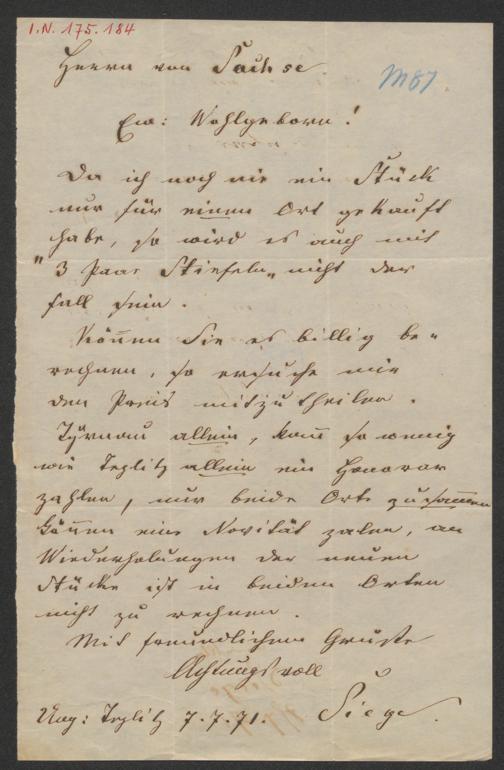 I.N. 175.184
Herrn von Sachse.
M87
Euer: Wohlgeborn!
Da ich noch nie ein Stück
nur für einen Ort gekauft
habe, so wird es auch mit
"3 Paar Stiefeln„ nicht der
fall sein.
Können Sie es billig be=
rechnen, so ersuche mir
den Preis mitzutheilen.
Tyrnau allein, kann so wenig
wie Teplitz allein ein Honorar
zahlen, nur beide Orte zusammen
können eine Novität zalen, an
Wiederholungen der neuen
Stücke ist in beiden Orten
nicht zu rechnen.
Mit freundlichem Gruße
Achtungsvoll
Siege.
Ung: Teplitz 7.7.71.